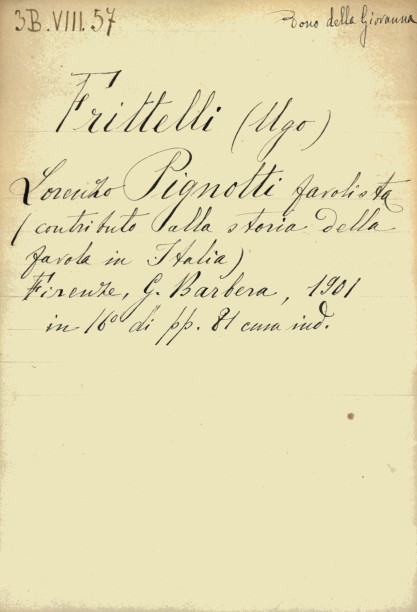 3B.VIII.57
Dono della Giovanna
Frittelli (Ugo)
Lorenzo Pignotti favolista
(contributo alla storia della
favola in Italia)
Firenze, G. Barbera, 1901
in 16º di pp. 81 ind.